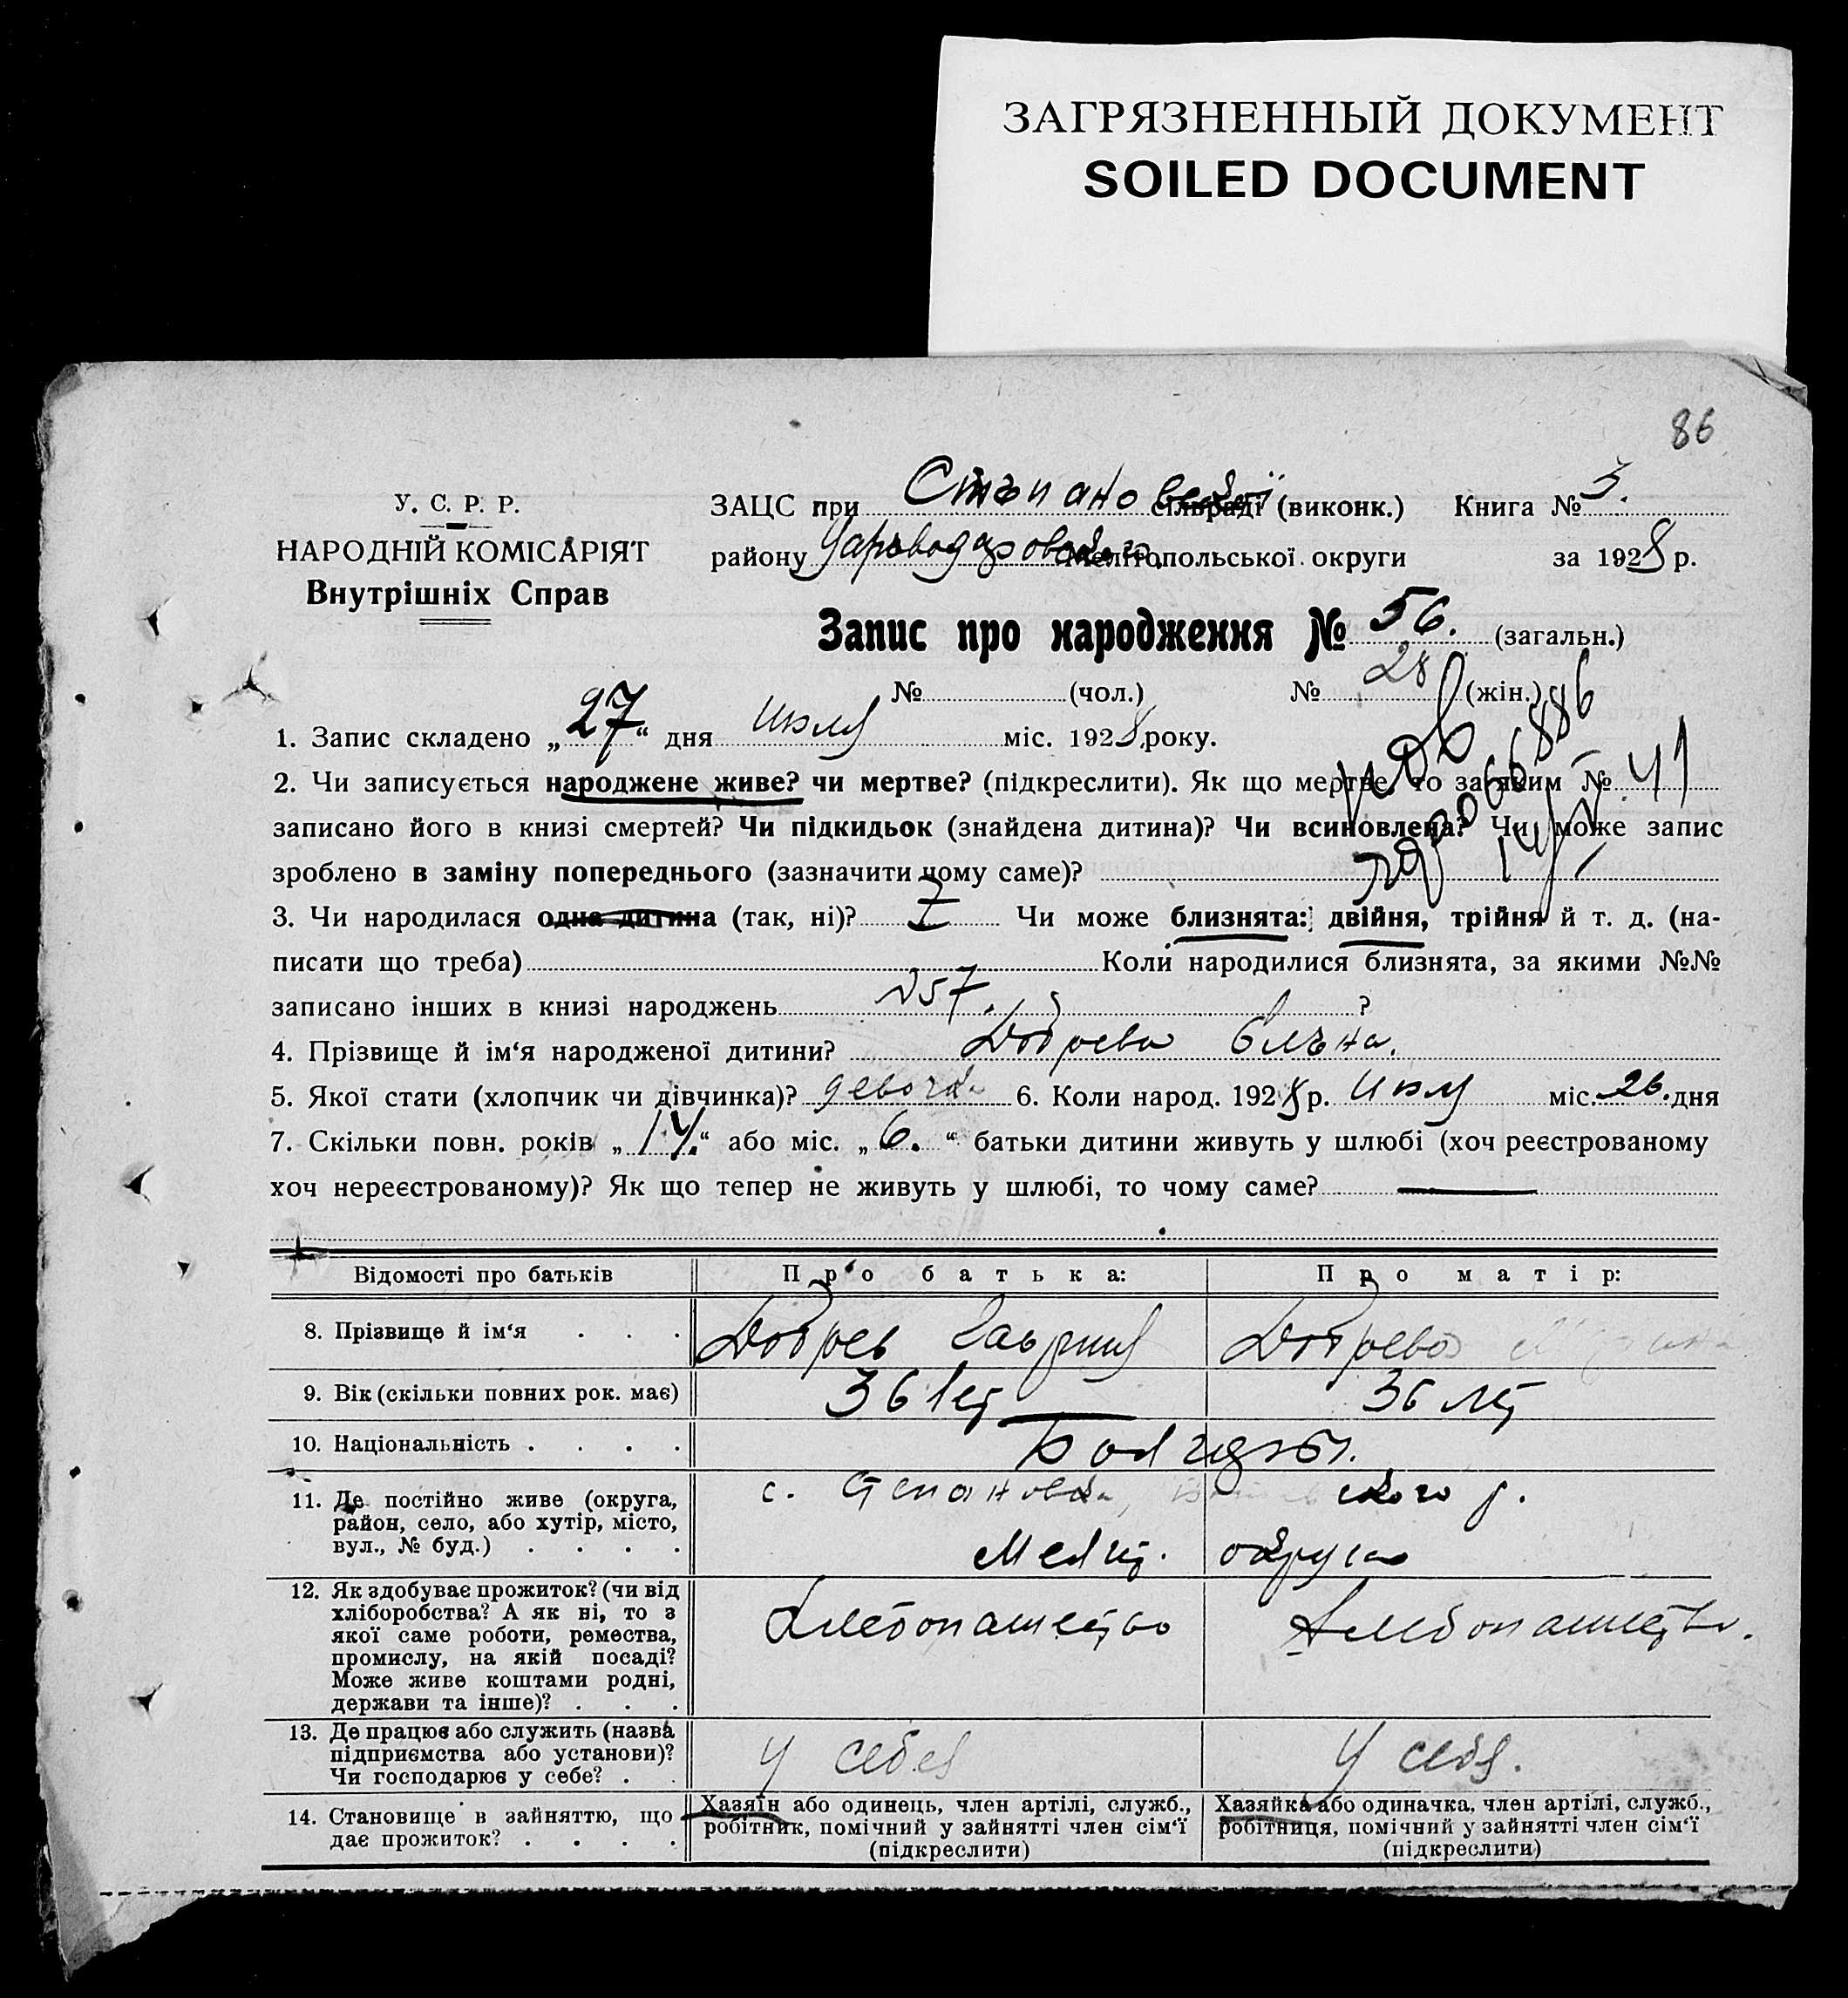 ЗАГРЯЗНЕННЫЙ ДОКУМЕНТ
SOILED DOCUMENT
86
У. С. Р. Р.
НАРОДНІЙ КОМІСАРІЯТ
Внутрішніх Справ
ЗАЦС при Стъпановской сільраді (виконк.) Книга № 3.
району Мелітопольської округи за 1928 р.
Запис про народження № 56. (загальн.)
№ (чол.) № 28 (жін.)
1. Запис складено „27“ дня июля міс. 1928 року.
2. Чи записується народжене живе? чи мертве? (підкреслити). Як що мертве, то за яким №
записано його в книзі смертей? Чи підкидьок (знайдена дитина)? Чи всиновлена? Чи може запис
зроблено в заміну попереднього (зазначити чому саме)?
3. Чи народилася одна дитина (так, ні)? Чи може близнята: двійня, трійня й т. д. (на-
писати що треба) Коли народилися близнята, за якими №№
записано інших в книзі народжень №57. ?
4. Прізвище й ім‘я народженої дитини? Добрева Елъна.
5. Якої стати (хлопчик чи дівчинка)? девочка 6. Коли народ. 1928 р. Июля міс. 26. дня
7. Скільки повн. років „14.“ або міс. „6.“ батьки дитини живуть у шлюбі (хоч реєстрованому
хоч нереєстрованому)? Як що тепер не живуть у шлюбі, то чому саме?
Відомості про батьків Про батька: Про матір:
8. Прізвище й ім‘я . . . Добрев Гаврил Добрева
9. Вік (скільки повних рок. має) 36 лет 36 лет
10. Національність . . . . Болгары.
11. Де постійно живе (округа, район, село, або хутір, місто, вул., № буд.) . . . . с. Степановка, ского р.
Мелит. округа
12. Як здобуває прожиток? (чи від хліборобства? А як ні, то з якої саме роботи, ремества, промислу, на якій посаді? Може живе коштами родні, держави та інше)? . . . Хлебопашество Хлебопашество.
13. Де працює або служить (назва підприємства або установи)? Чи господарює у себе? . . У себя У себя.
14. Становище в зайняттю, що дає прожиток? . . . . Хазяїн або одинець, член артілі, служб., робітник, помічний у зайнятті член сім‘ї (підкреслити) Хазяйка або одиначка, член артілі, служб., робітниця, помічний у зайнятті член сім‘ї (підкреслити)